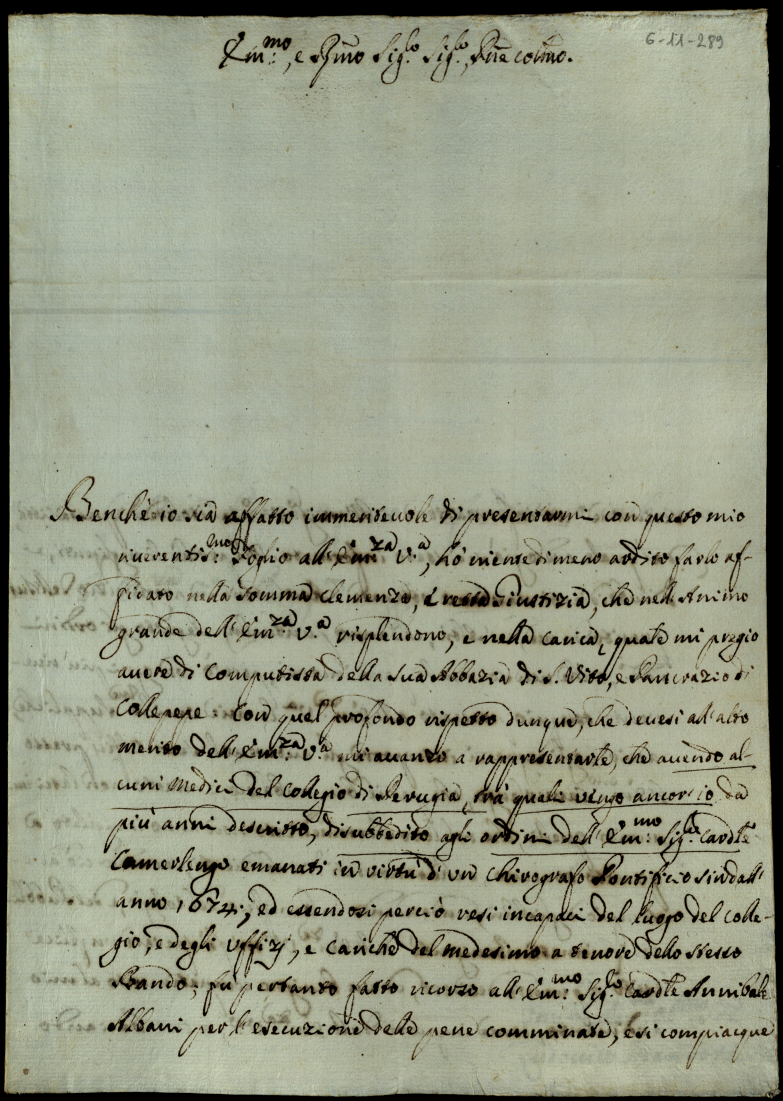 6-11-289
Em:mo, e Rmo Sig.re Sig.re, Pne colmo.
Benchè io sia affatto immeritevole di presentarmi con questo mio
riverentis:mo Foglio all'Em:za V.a, hò nientedimeno ardito farlo af-
fidato nella somma clemenza, e retta Giustizia, che nell'Animo
grande dell'Em:za V.a risplendono, e nella carica, quale mi pregio
avere di Computista della sua Abbazia di S. Vito, e Pancrazio di
Collepepe. Con quel profondo rispetto dunque, che devesi all'alto
merito dell'Em:za V.a mi avanzo a rappresentarle, che avendo al-
cuni Medici del Collegio di Perugia, trà quali vengo ancor'io da
più anni descritto, disubbedito agli ordini dell'Em:mo Sig.re Cardle
Camerlengo emanati in virtù d'un Chirografo Pontificio sin dall'
anno 1674:, ed essendosi perciò resi incapaci del luogo del Colle-
gio, e degli Uffizj, e cariche del medesimo a tenore dello stesso
Bando; fù pertanto fatto ricorso all'Em:mo Sig.re Cardle Annibale
Albani per l'esecuzione delle pene comminate, e si compiacque